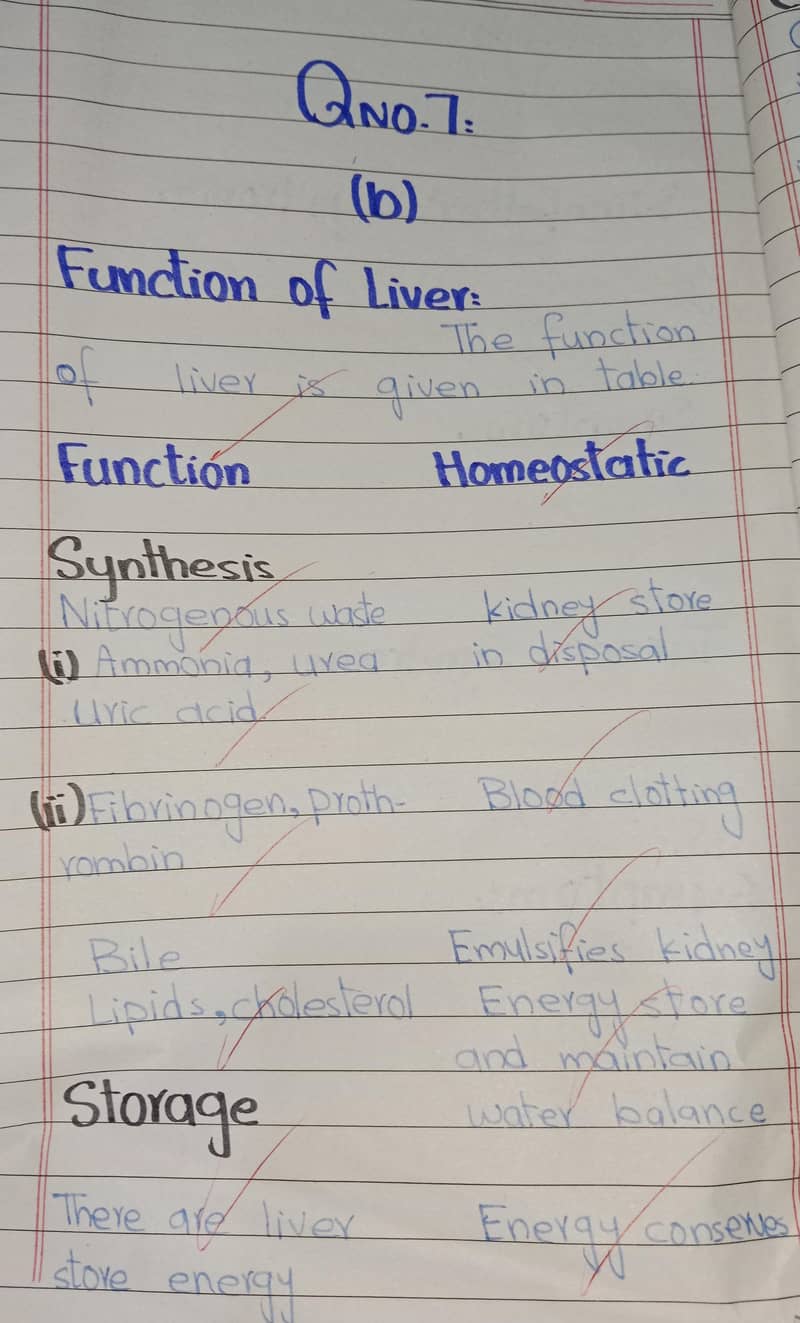 QNO.7:
(b)
Function of Liver:
The function
of liver is given in table.
Function Homeostatic
Synthesis
Nitrogenous waste kidney store
(i) Ammonia, urea in disposal
uric acid.
(ii) Fibrinogen, proth- Blood clotting
rombin
Bile Emulsifies kidney
Lipids, cholesterol Energy store
and maintain
Storage water balance
There are liver Energy conserves
store energy